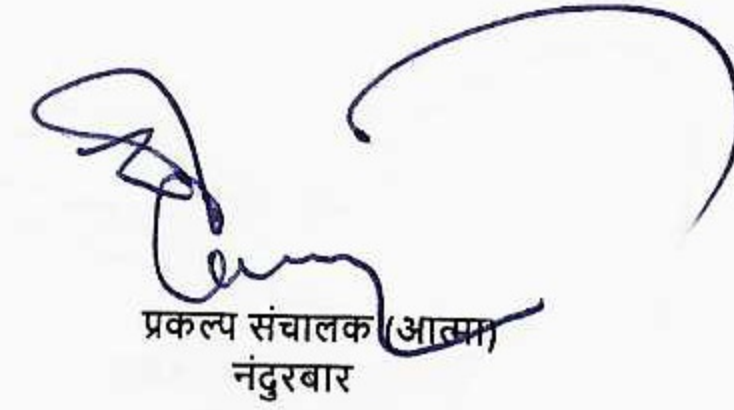 प्रकल्प संचालक (आत्मा)
नंदुरबार